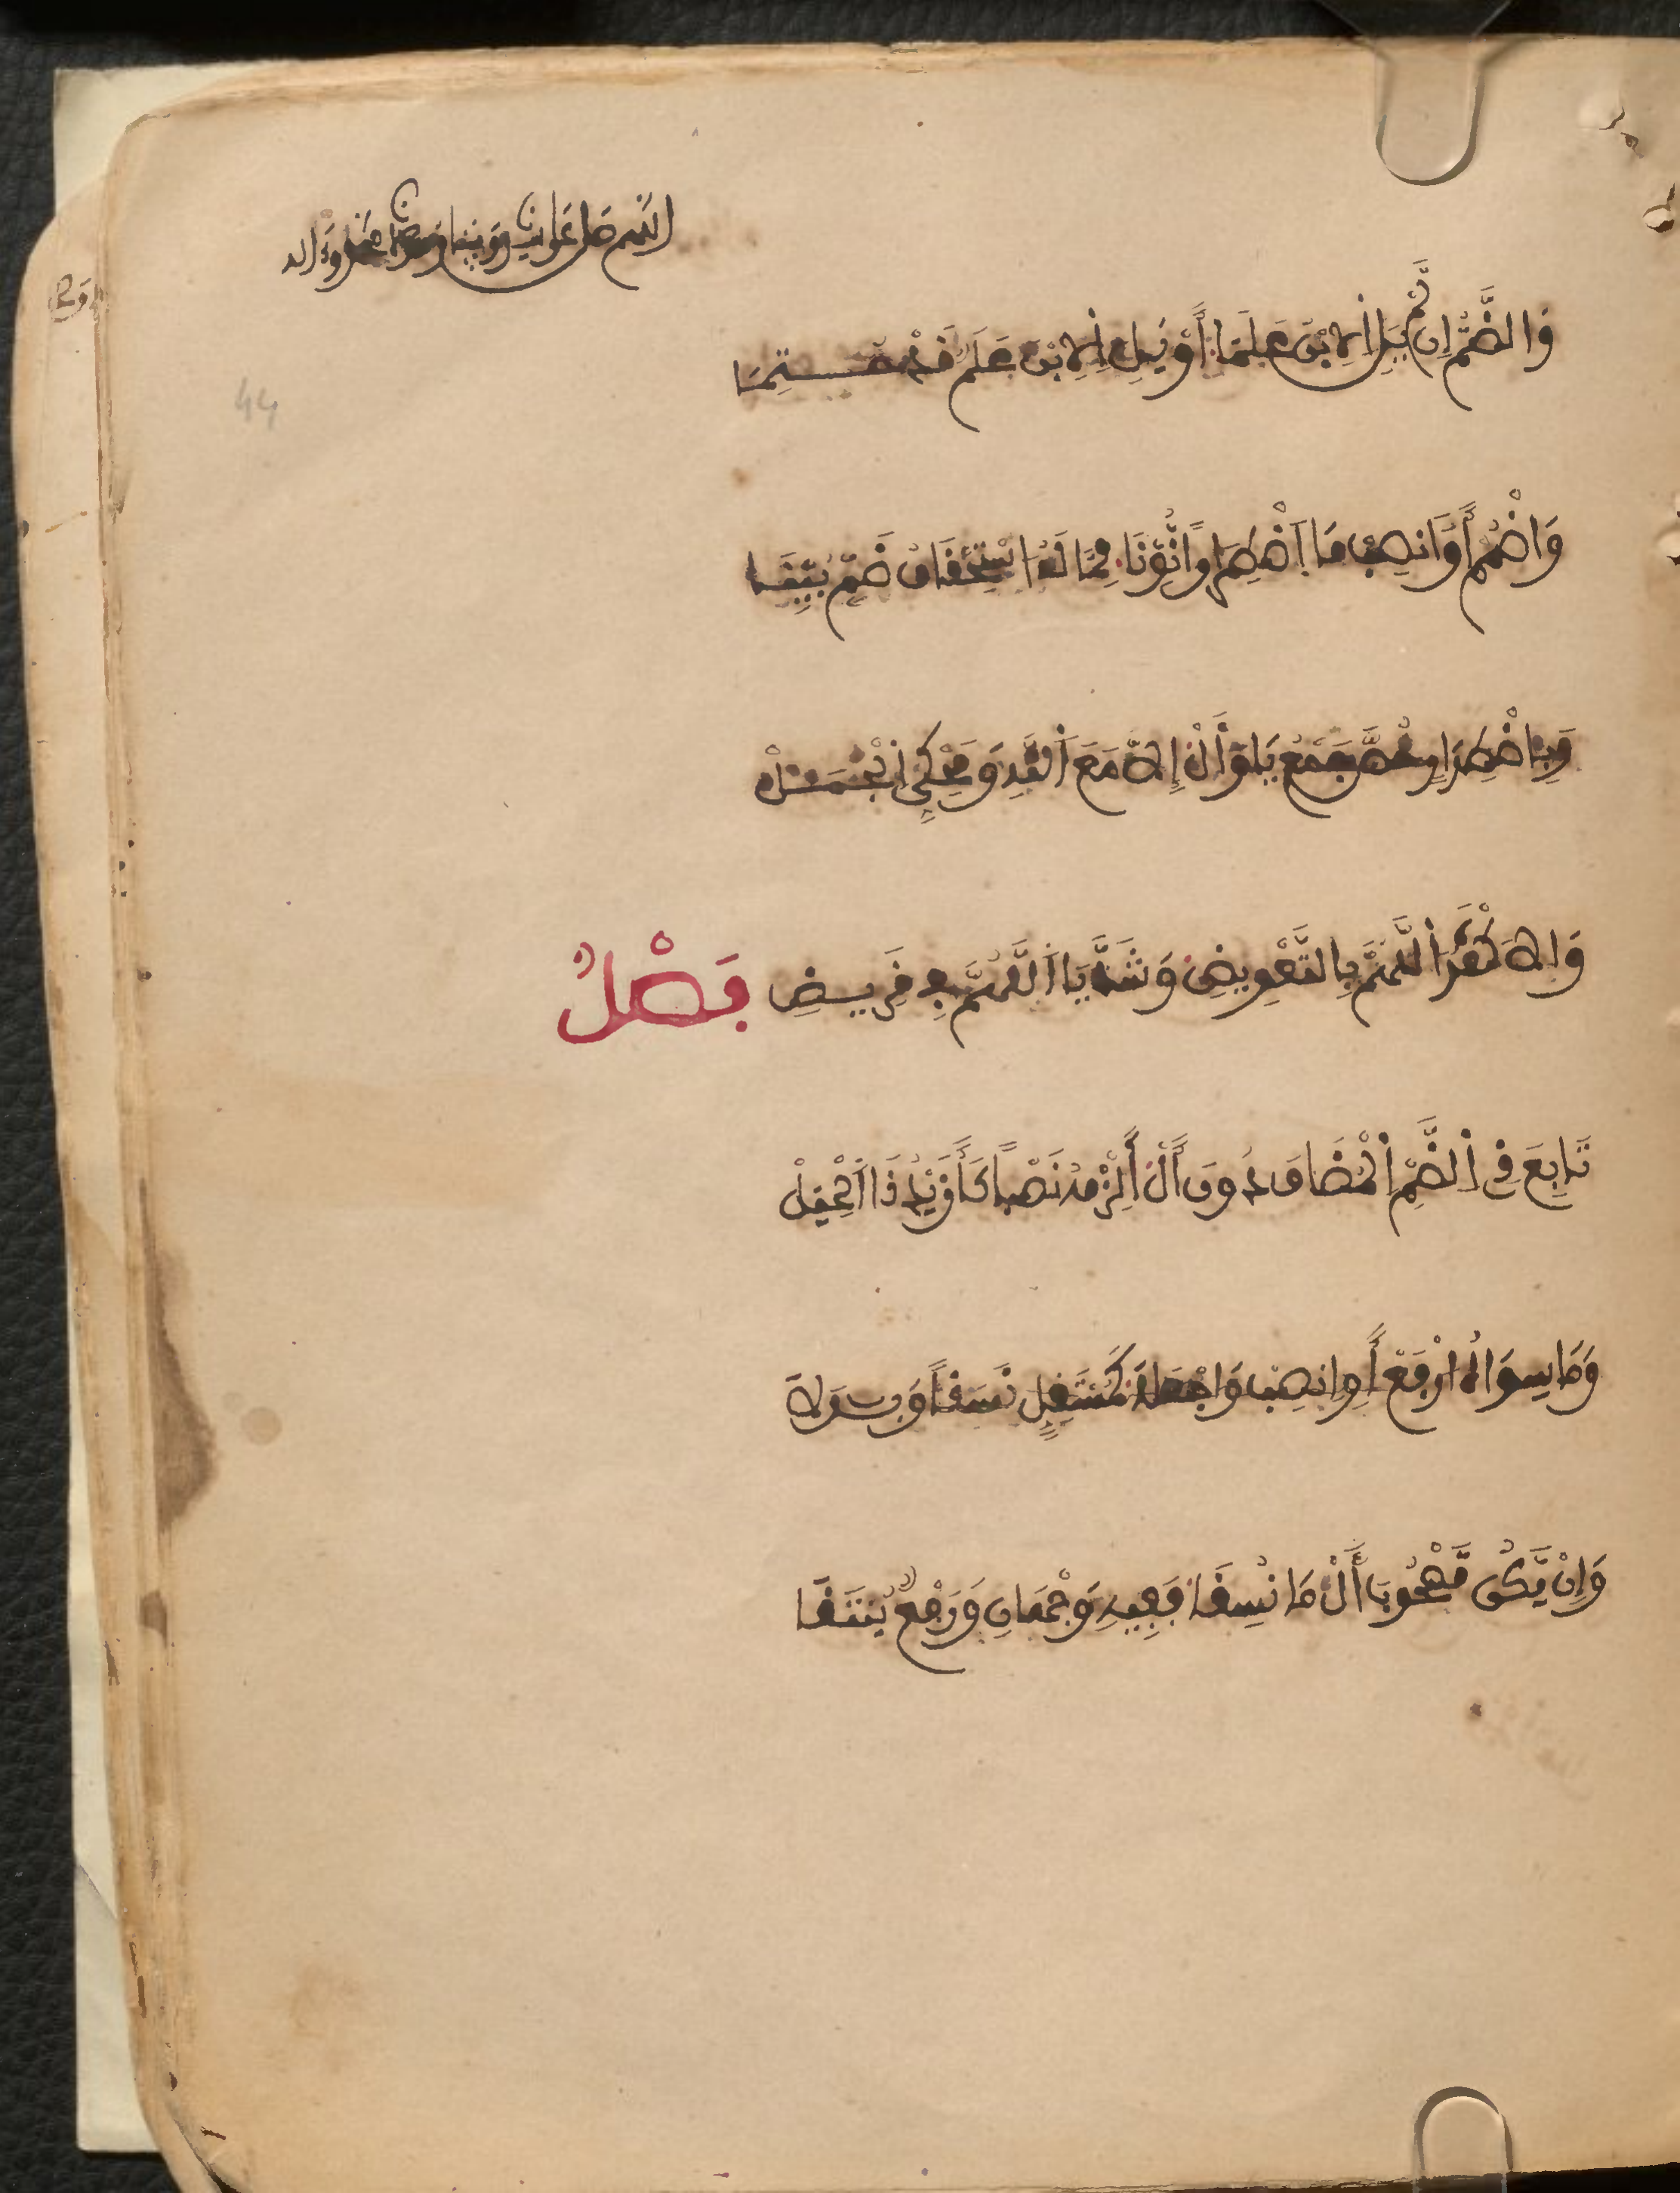 اللهم صل على سيدنا ونبينا ومولانا محمد وءاله
44
وَالضَّمُّ إِن لَّمْ يَلِ اِلِابْنُ عَلَمَا أَوْ يَلِ اِلِابْنَ عَلَمٌ قَدْ حُتِمَا
وَاضْمُمْ أَوَ انصِبْ مَا اَضْطِرَاراً نُّوِّنَا مِمَّا لَهُ اسْتِحْقَاقُ ضَمٍّ بُيِّنَا
وَبِاضْطِرَارٍ خُصَّ جَمْعُ يَا وَأَلْ إِلَّا مَعَ اَللَّهِ وَمَحْكِيِّ اِلْجُمَلْ
وَالَاكْثَرُ اَللَّهُمَّ بِالتَّعْوِيضِ وَشَذَّ يَا اَللَّهُمَّ فِي قَرِيضِ فَصْلٌ
تَابِعَ ذِي اِلضَّمِّ اِلْمُضَافَ دُونَ أَلْ أَلْزِمْهُ نَصْباً كَأَزَيْدُ ذَا اَلْحِيَلْ
وَمَا سِوَاهُ ارْفَعْ أَوِ انصِبْ وَاجْعَلَا كَمُسْتَقِلٍّ نَسَقاً وَبَدَلَا
وَإِنْ يَّكُن مَّصْحُوبَ أَلْ مَا نُسِقَا فَفِيهِ وَجْهَانِ وَرَفْعٌ يُنتَقَى